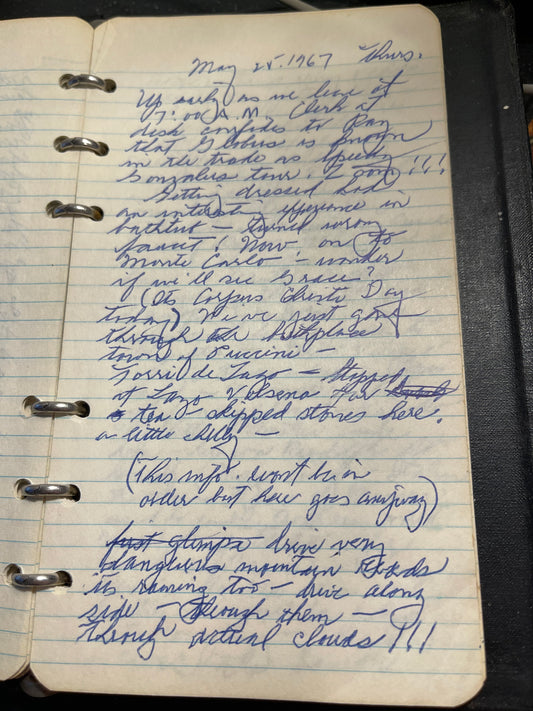 May 25, 1967 Thurs.
Up early as we leave at
7:00 A.M. Clerk at
desk confides to Ray
that Globus is known
in the trade as Speedy
Gonzales tour. I !!!
Getting dressed had
an interesting experience in
bathtub — turned wrong
faucet! Now on to
Monte Carlo — wonder
if we'll see Grace?
(Its Corpus Christi Day
today) We've just gone
through the birthplace
town of Puccini —
Torri de Lago — Stopped
at Lago Velsena for
tea — skipped stones here.
a little chilly —
(This info. won't be in
order but here goes anyway)
first glimpse drive very
dangerous mountain roads
its raining too — drive along
side — through them —
through actual clouds!!!